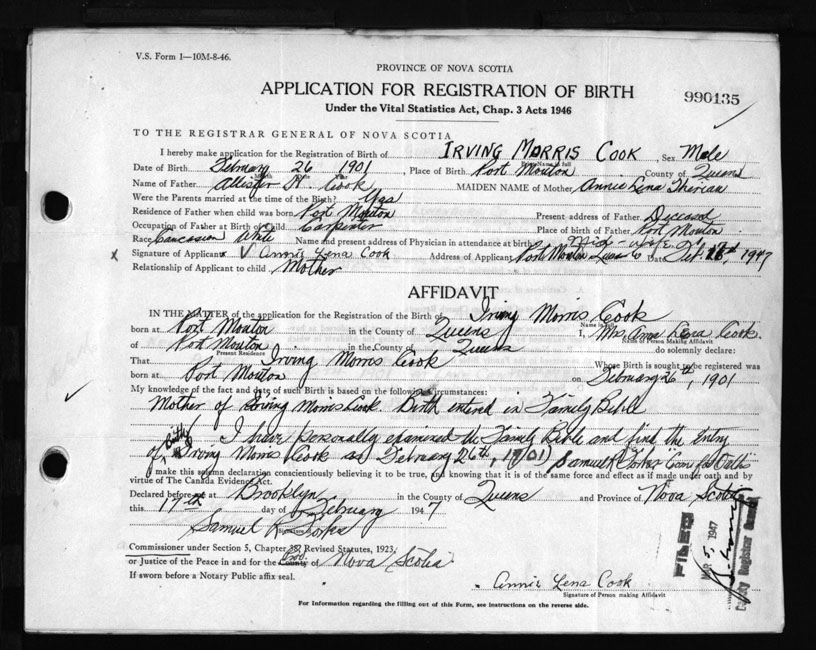 V.S. Form 1—10M-8-46.
PROVINCE OF NOVA SCOTIA
APPLICATION FOR REGISTRATION OF BIRTH
990135
Under the Vital Statistics Act, Chap. 3 Acts 1946
TO THE REGISTRAR GENERAL OF NOVA SCOTIA
I hereby make application for the Registration of Birth of IRVING MORRIS COOK, Sex Male
Print Name in full
Date of Birth February 26 1901, Place of Birth Port Mouton County of Queens
Name of Father Allister Cook MAIDEN NAME of Mother Annie Lena Therian
Were the Parents married at the time of the Birth? Yes
Residence of Father when child was born Port Mouton Present address of Father Deceased
Occupation of Father at Birth of Child Carpenter Place of birth of Father Port Mouton
Race Caucasian White Name and present address of Physician in attendance at birth Mid-wife
Signature of Applicant Annie Lena Cook Address of Applicant Port Mouton Queens Co Date Feb. 1947
Relationship of Applicant to child Mother
AFFIDAVIT
IN THE MATTER of the application for the Registration of the Birth of Irving Morris Cook
Name in full
born at Port Mouton in the County of Queens I, Mrs. Cook.
Name of Person Making Affidavit
of Port Mouton in the County of Queens do solemnly declare:
Present Residence
That Irving Morris Cook Whose Birth is sought to be registered was
born at Port Mouton on February 26th, 1901
My knowledge of the fact and date of such Birth is based on the following circumstances:
Mother of Irving Morris Cook. Birth entered in Family Bible
I have personally examined the Family Bible and find the Entry
of Birth Irving Morris Cook as February 26th, 1901
make this solemn declaration conscientiously believing it to be true, and knowing that it is of the same force and effect as if made under oath and by
virtue of The Canada Evidence Act.
Declared before me at Brooklyn in the County of Queens and Province of Nova Scotia
this 17th day of February 1947
Samuel
Commissioner under Section 5, Chapter 38, Revised Statutes, 1923,
or Justice of the Peace in and for the County of Prov. Nova Scotia
If sworn before a Notary Public affix seal.
Annie Lena Cook
Signature of Person making Affidavit
For Information regarding the filling out of this Form, see instructions on the reverse side.
FILED
MAR 5, 1947
Deputy Registrar General